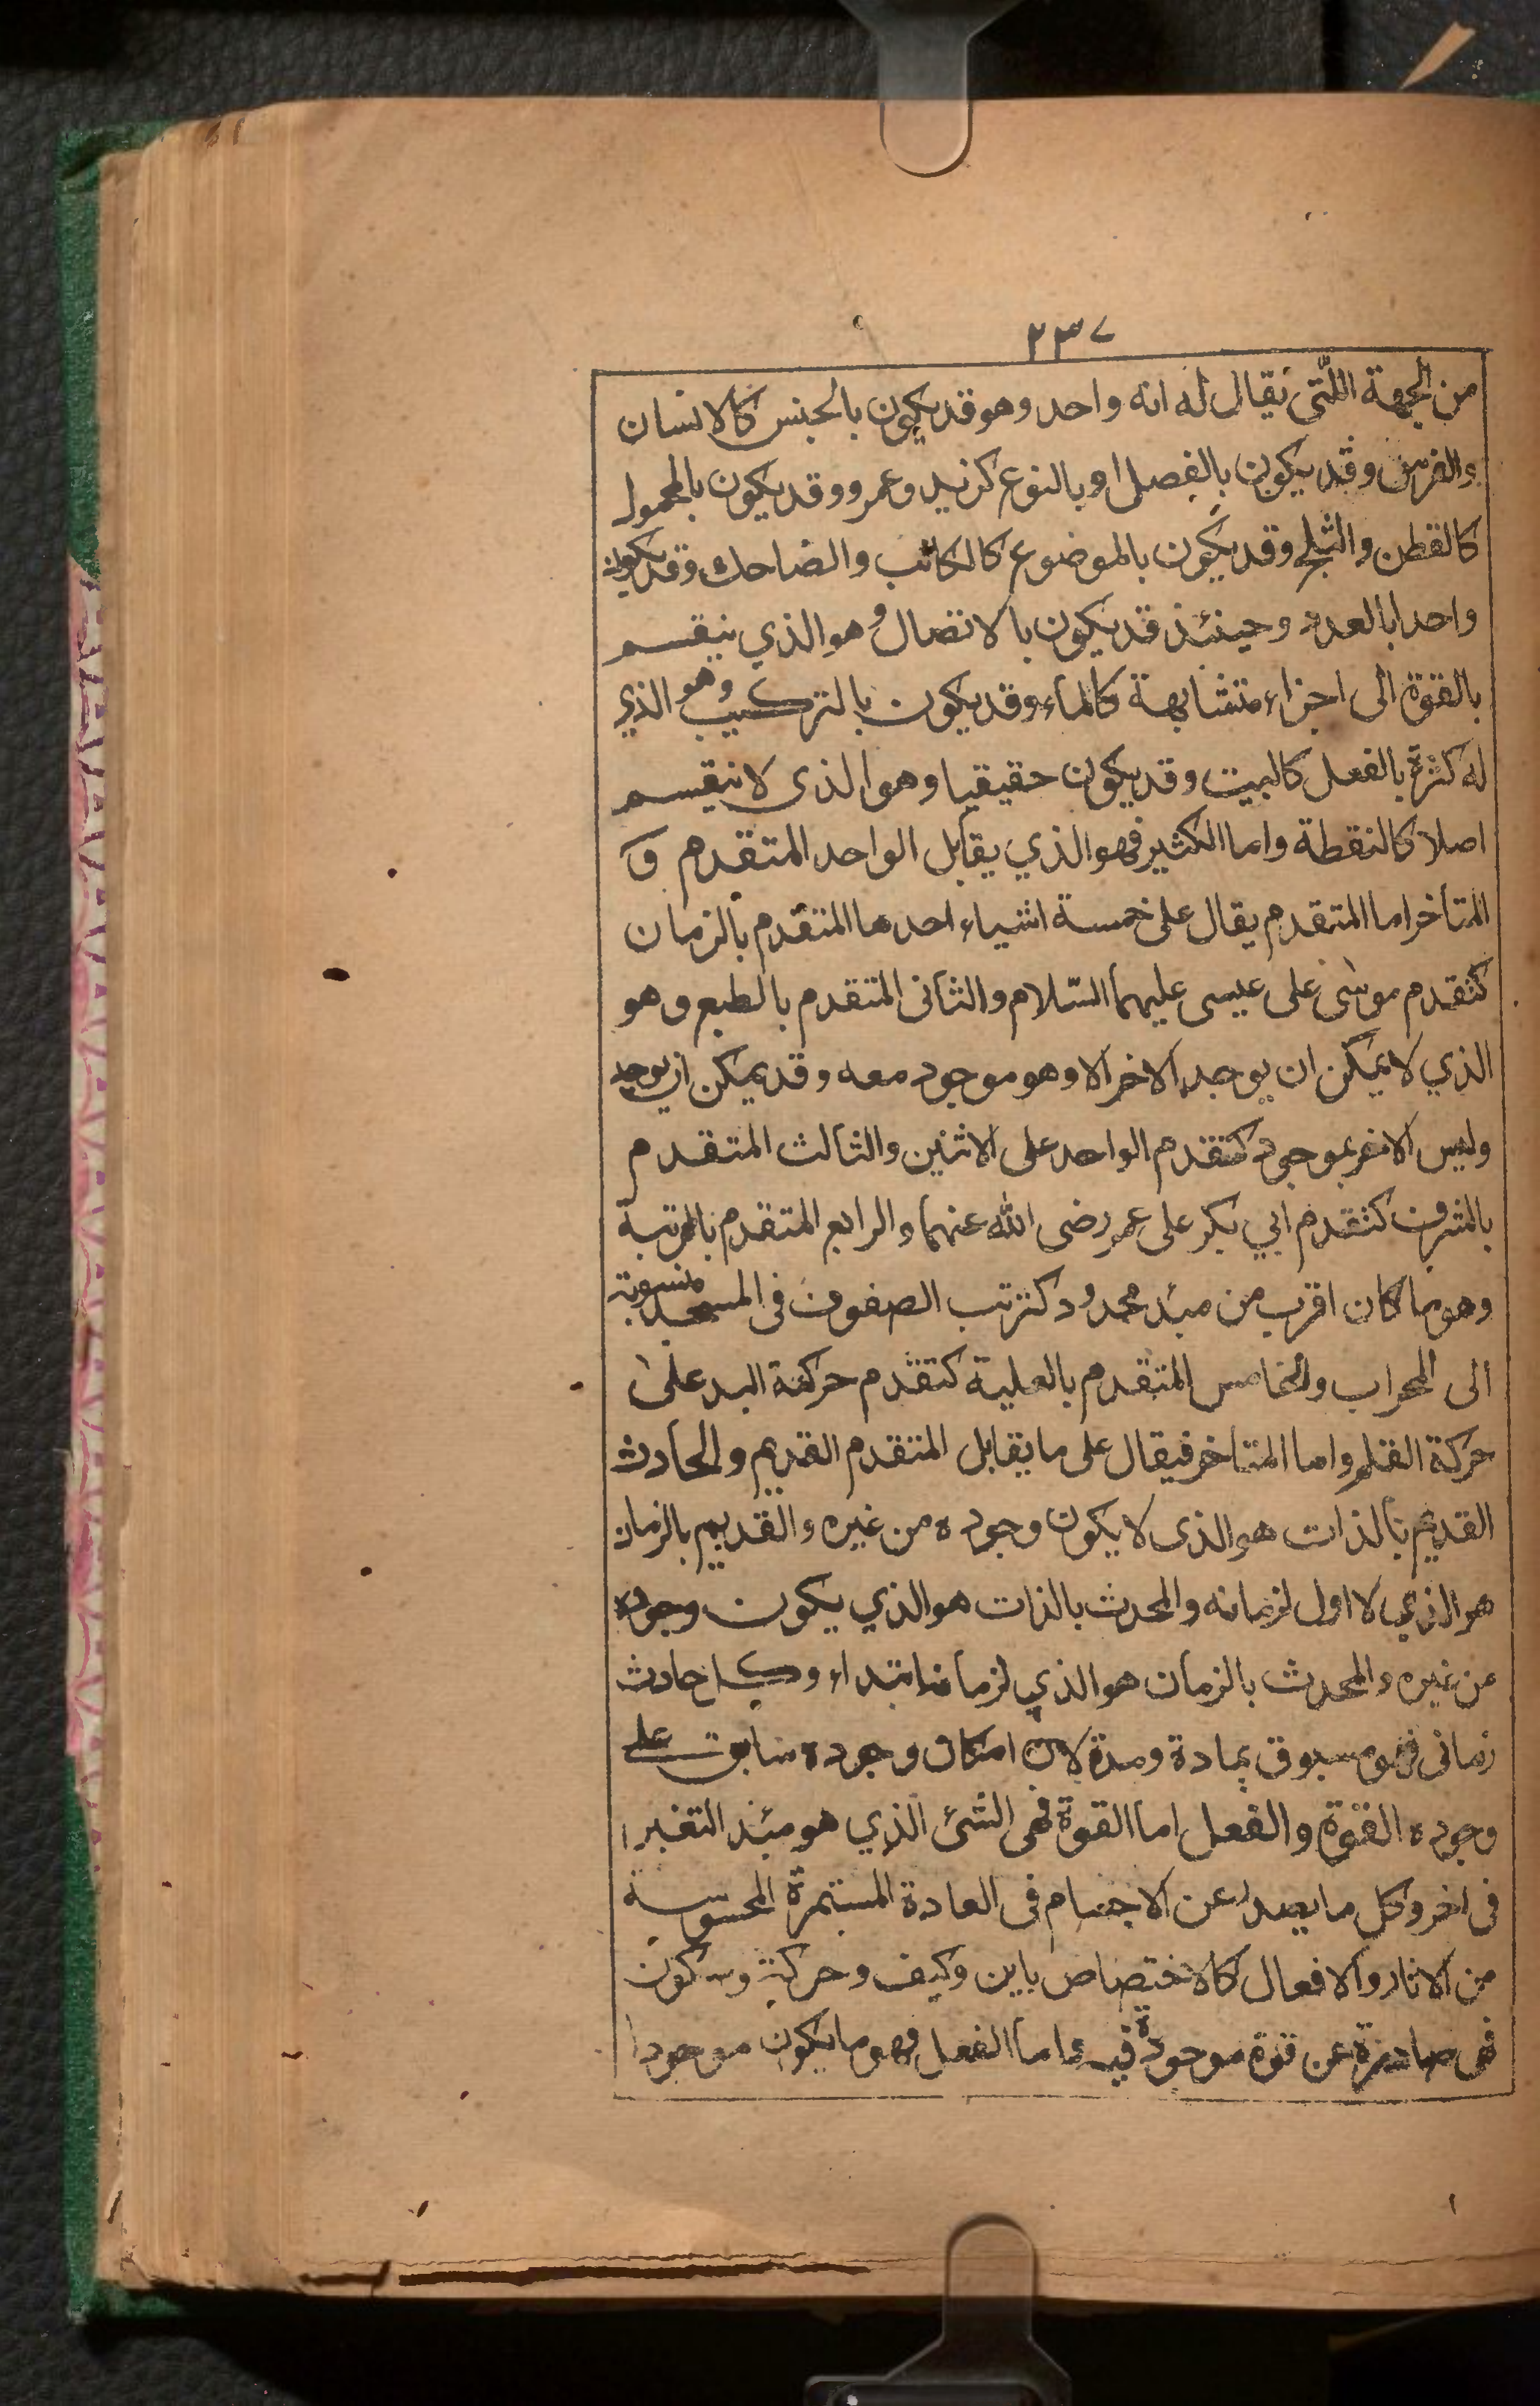 ٢٣٧
من الجهة اللتى يقال له انه واحد وهو قد يكون بالجنس كالانسان
والفرس وقد يكون بالفصل او بالنوع كزيد وعمرو وقد يكون بالمحمول
كالقطن والثلج وقد يكون بالموضوع كالكاتب والضاحك وقد يكون
واحدا بالعدد وحينئذ قد يكون بالاتصال وهو الذي ينقسم
بالقوة الى اجزاء متشابهة كالماء وقد يكون بالتركيب وهو الذي
له كثرة بالفعل كالبيت وقد يكون حقيقيا وهو الذى لا ينقسم
اصلا كالنقطة واما الكثير فهو الذي يقابل الواحد المتقدم و
المتاخر اما المتقدم يقال على خمسة اشياء احدها المتقدم بالزمان
كتقدم موسى على عيسى عليهما السّلام والثانى المتقدم بالطبع وهو
الذي لا يمكن ان يوجد الاخر الا وهو موجود معه وقد يمكن ان يوجد
وليس الاخر بموجود كتقدم الواحد على الاثنين والثالث المتقدم
بالشرف كتقدم ابي بكر على عمر رضى الله عنهما والرابع المتقدم بالمرتبة
وهو ما كان اقرب من مبدء محدود كترتب الصفوف فى المسجد منسوبة
الى المحراب والخامس المتقدم بالعلية كتقدم حركة اليد على
حركة القلم واما المتاخر فيقال على ما يقابل المتقدم القديم والحادث
القديم بالذات هو الذى لا يكون وجوده من غيره والقديم بالزمان
هو الذي لا اول لزمانه والمحدث بالذات هو الذي يكون وجوده
من غيره والمحدث بالزمان هو الذي لزمانه ابتداء وكل حادث
زمانى فهو مسبوق بمادة ومدة لان امكان وجوده سابق على
وجوده القوة والفعل اما القوة فهى الشئ الذي هو مبدء التغير
فى اخر وكل ما يصدر عن الاجسام فى العادة المستمرة المحسوسة
من الاثار والافعال كالاختصاص باين وكيف وحركة وسكون
فهى صادرة عن قوة موجودة فيه واما الفعل فهو ما يكون موجودا